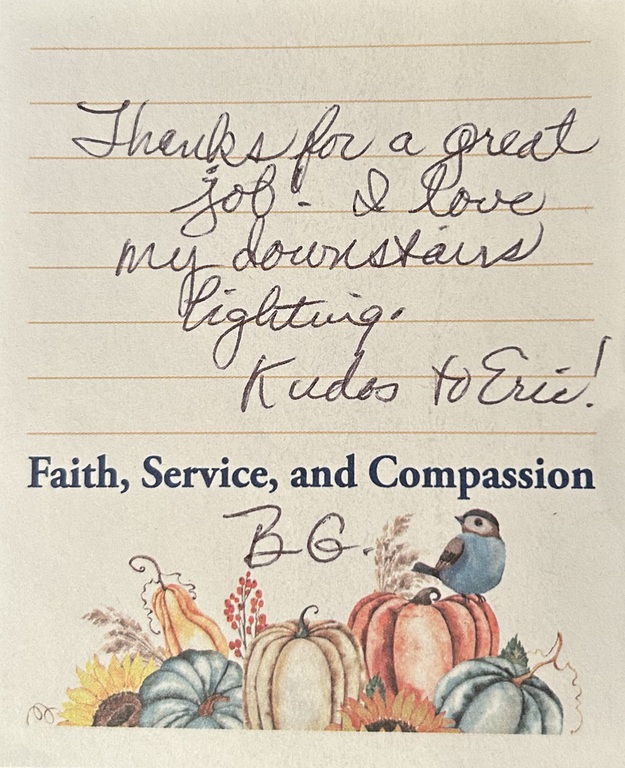 Thanks for a great
job. I love
my downstairs
lighting.
Kudos to Eric!
Faith, Service, and Compassion
B G.